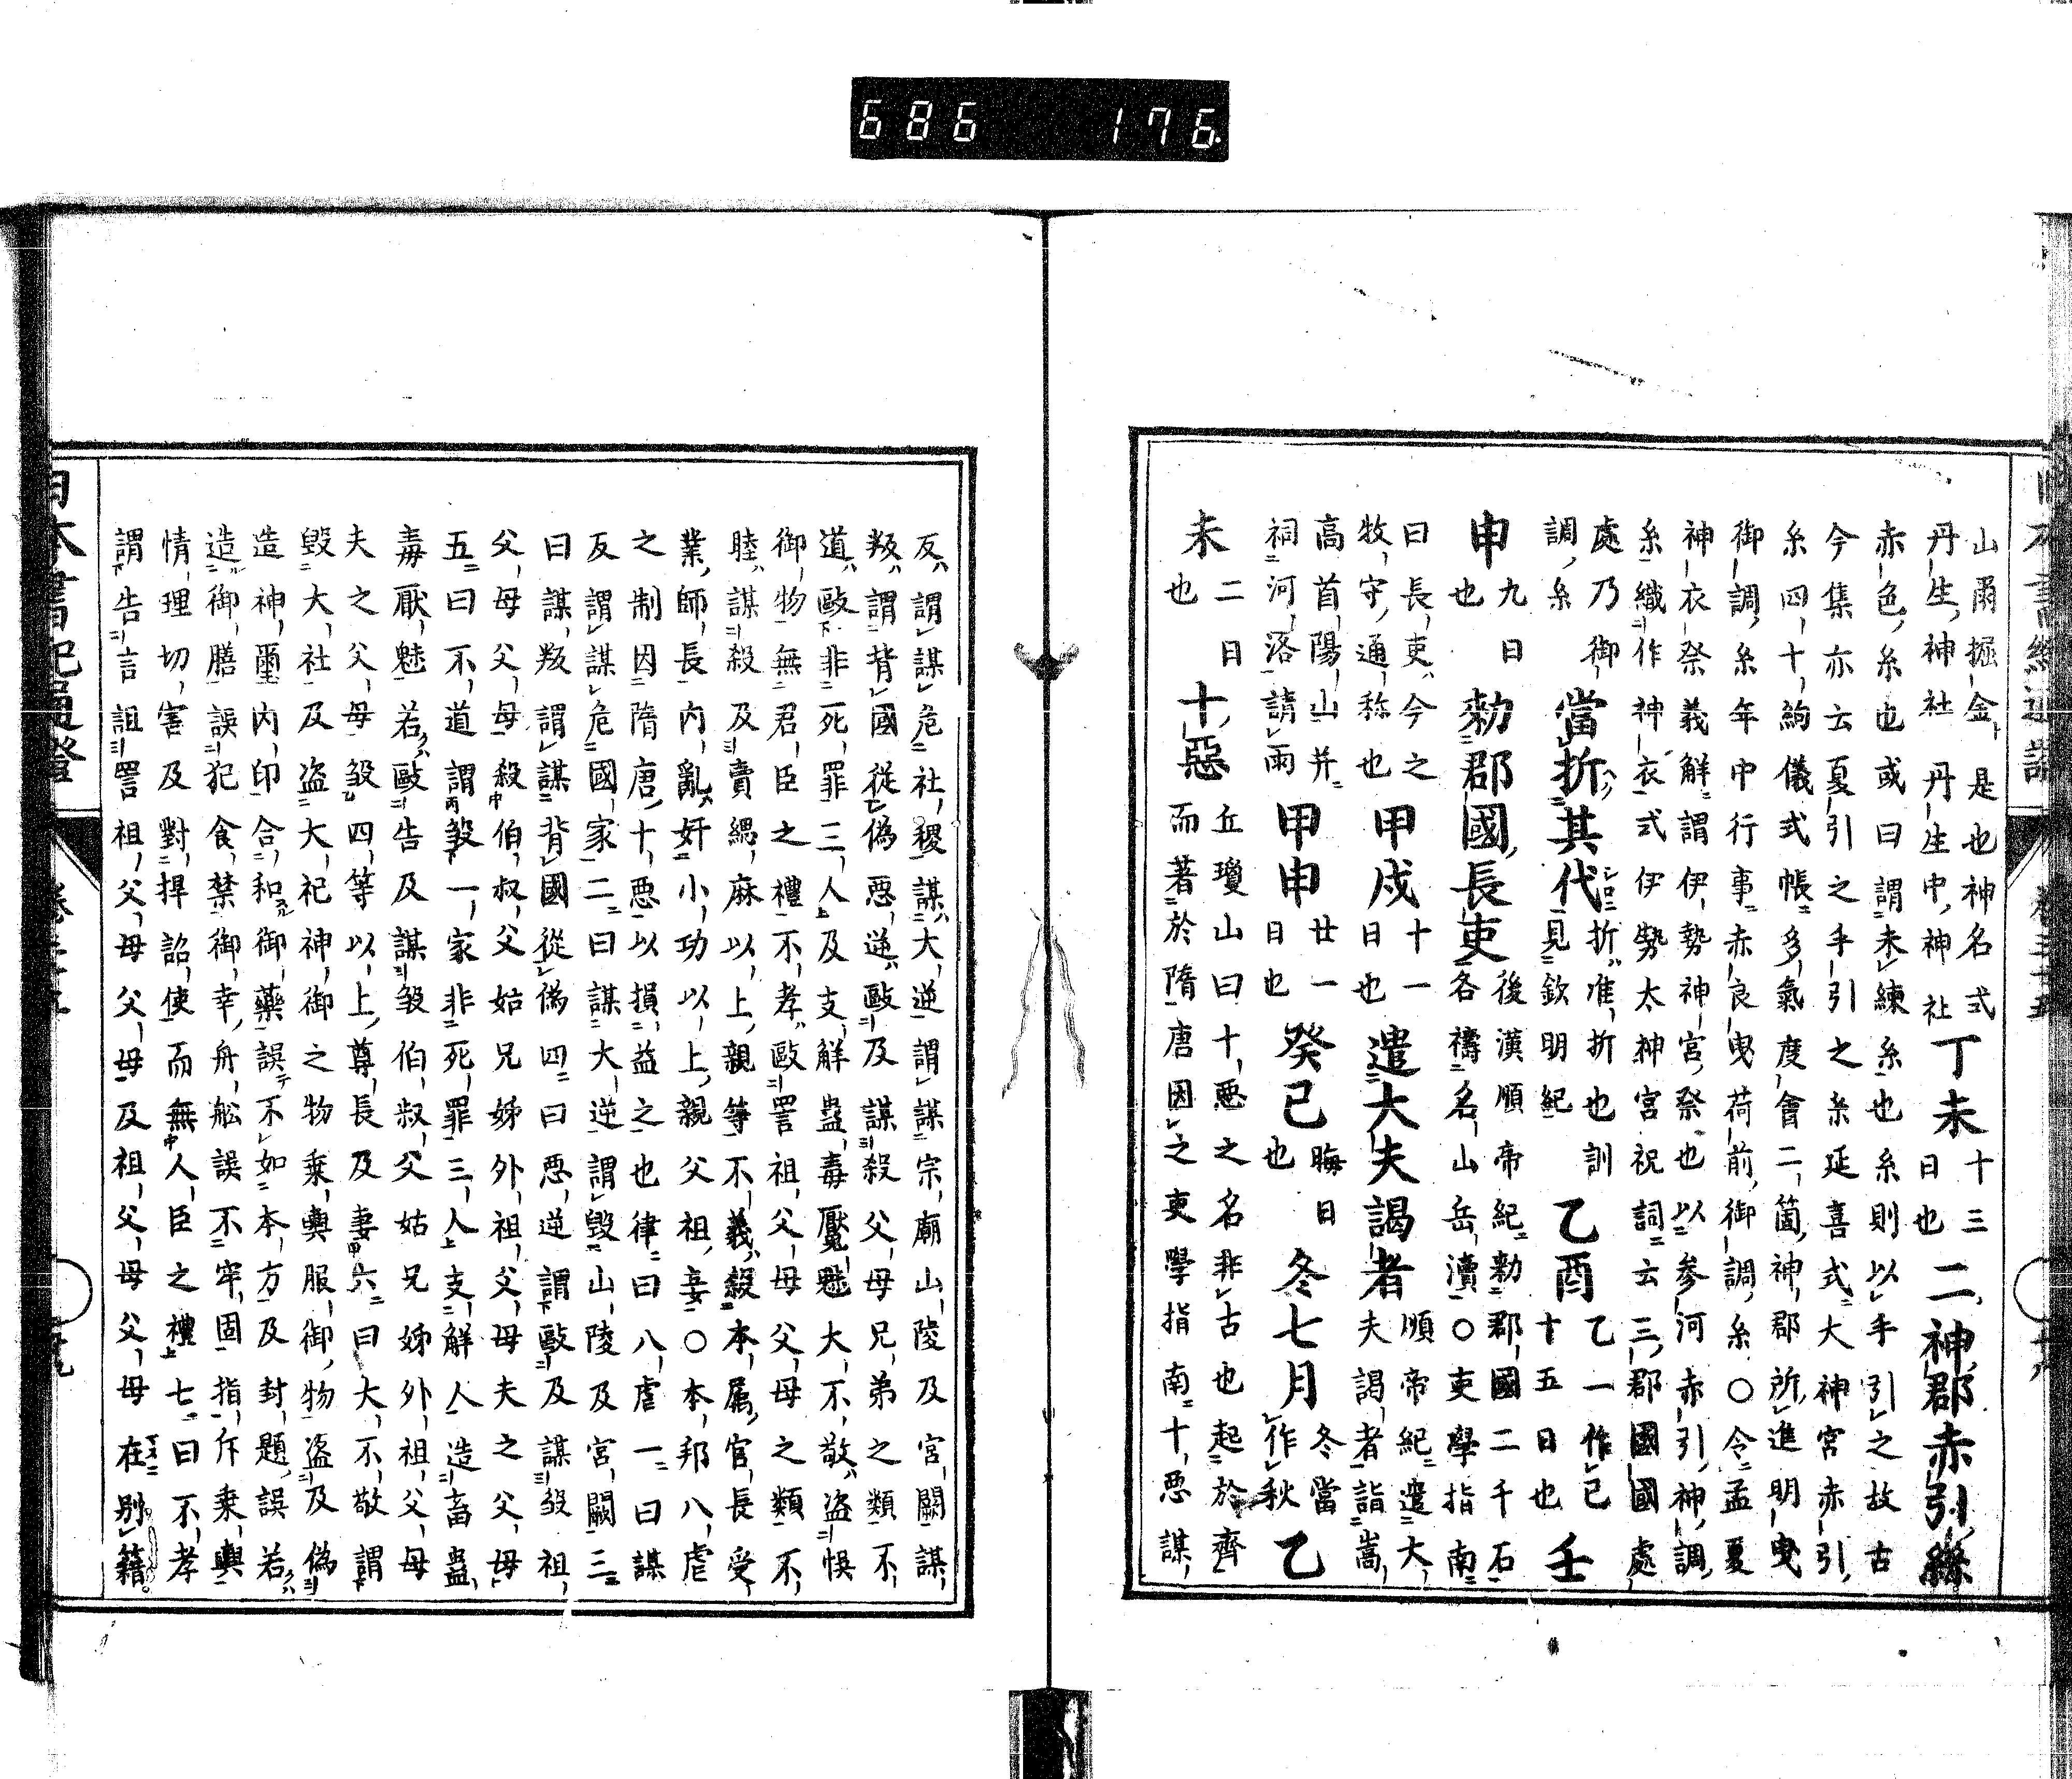 日本書紀通證
山爾掘金是也神名式
丹生神社丹生中神社
丁未
十三
日也
二神郡赤引絲
赤色糸也或曰謂未練糸也糸則以手引之故古
今集亦云夏引之手引之糸延喜式大神宮赤引
糸四十絇儀式帳多氣度會二箇神郡所進明曳
御調糸年中行事赤良曳荷前御調糸〇令孟夏
神衣祭義解謂伊勢神宮祭也以參河赤引神調
糸織作神衣式伊勢太神宮祝詞云三郡國國處
處乃御
調糸
當折其代
折准折也訓
見欽明紀
乙酉
乙一作己
十五日也
壬
申
九日
也
勅郡國長吏
後漢順帝紀勅郡國二千石
各禱名山岳瀆〇吏學指南
曰長吏今之
牧守通称也
甲戌
十一
日也
遣大夫謁者
順帝紀遣大
夫謁者詣嵩
高首陽山并
祠河洛請雨
甲申
廿一
日也
癸巳
晦日
也
冬七月
冬當
作秋
乙
未
二日
也
十惡
丘瓊山曰十惡之名非古也起於齊
而著於隋唐因之吏學指南十惡謀
反謂謀危社稷謀大逆謂謀宗廟山陵及宮闕謀
叛謂背國從偽惡逆毆及謀殺父母兄弟之類不
道毆非死罪三人及支解蠱毒魘魅大不敬盜悞
御物無君臣之禮不孝毆詈祖父母父母之類不
睦謀殺及賣緦麻以上親等不義殺本属官長受
業師長內亂奸小功以上親父祖妾〇本邦八虐
之制因隋唐十惡以損益之也律曰八虐一曰謀
反謂謀危國家二曰謀大逆謂毀山陵及宮闕三
曰謀叛謂謀背國從偽四曰惡逆謂毆及謀殺祖
父母父母殺伯叔父姑兄姊外祖父母夫之父母
五曰不道謂殺一家非死罪三人支解人造畜蠱
毒厭魅若毆告及謀殺伯叔父姑兄姊外祖父母
夫之父母殺四等以上尊長及妻六曰大不敬謂
毀大社及盜大祀神御之物乗輿服御物盜及偽
造神璽內印合和御藥誤不如本方及封題誤若
造御膳誤犯食禁御幸舟舩誤不牢固指斥乗輿
情理切害及對捍詔使而無人臣之禮七曰不孝
謂告言詛詈祖父母父母及祖父母父母在別籍
日本書紀通證